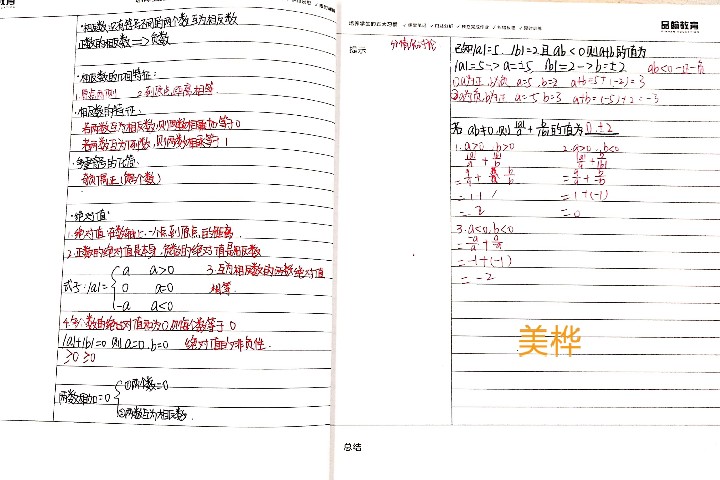 相反数:只有符号不同的两个数互为相反数
正数的相反数=>负数
·相反数的几何特征:
1.原点两侧 2.到原点距离相等
·相反数的特征:
若两数互为相反数,则两数相加等于0
若两数互为倒数,则两数相乘等于1
·多重符号的化简:
奇负偶正
·绝对值·
1.绝对值:在数轴上,一个点到原点的距离.
2.正数的绝对值是本身,负数的绝对值是相反数
式子:|a|= { a a>0
0 a=0
-a a<0
3.互为相反数的两数绝对值相等.
4.每个数的绝对值和为0,则每个数等于0
|a|+|b|=0 则a=0.b=0 绝对值的非负性.
≥0 ≥0
两数相加=0 { ①两个数=0
②两数互为相反数.
品翰教育
提示
分情况讨论
已知|a|=5,|b|=2且ab<0则a+b的值为
|a|=5->a=±5 |b|=2->b=±2
①a为正,b为负 a=5,b=-2 a+b=5+(-2)=3
a+b=(-5)+2=-3
若ab≠0,则
的值为0,±2
1.a>0,b>0
=1+1
=2
2.a>0,b<0
=1+(-1)
=0
3.a<0,b<0
=-1+(-1)
=-2
美桦
总结